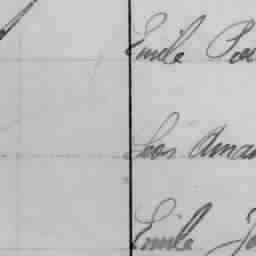 Emile Poi
Léon Aman
Emile Jo